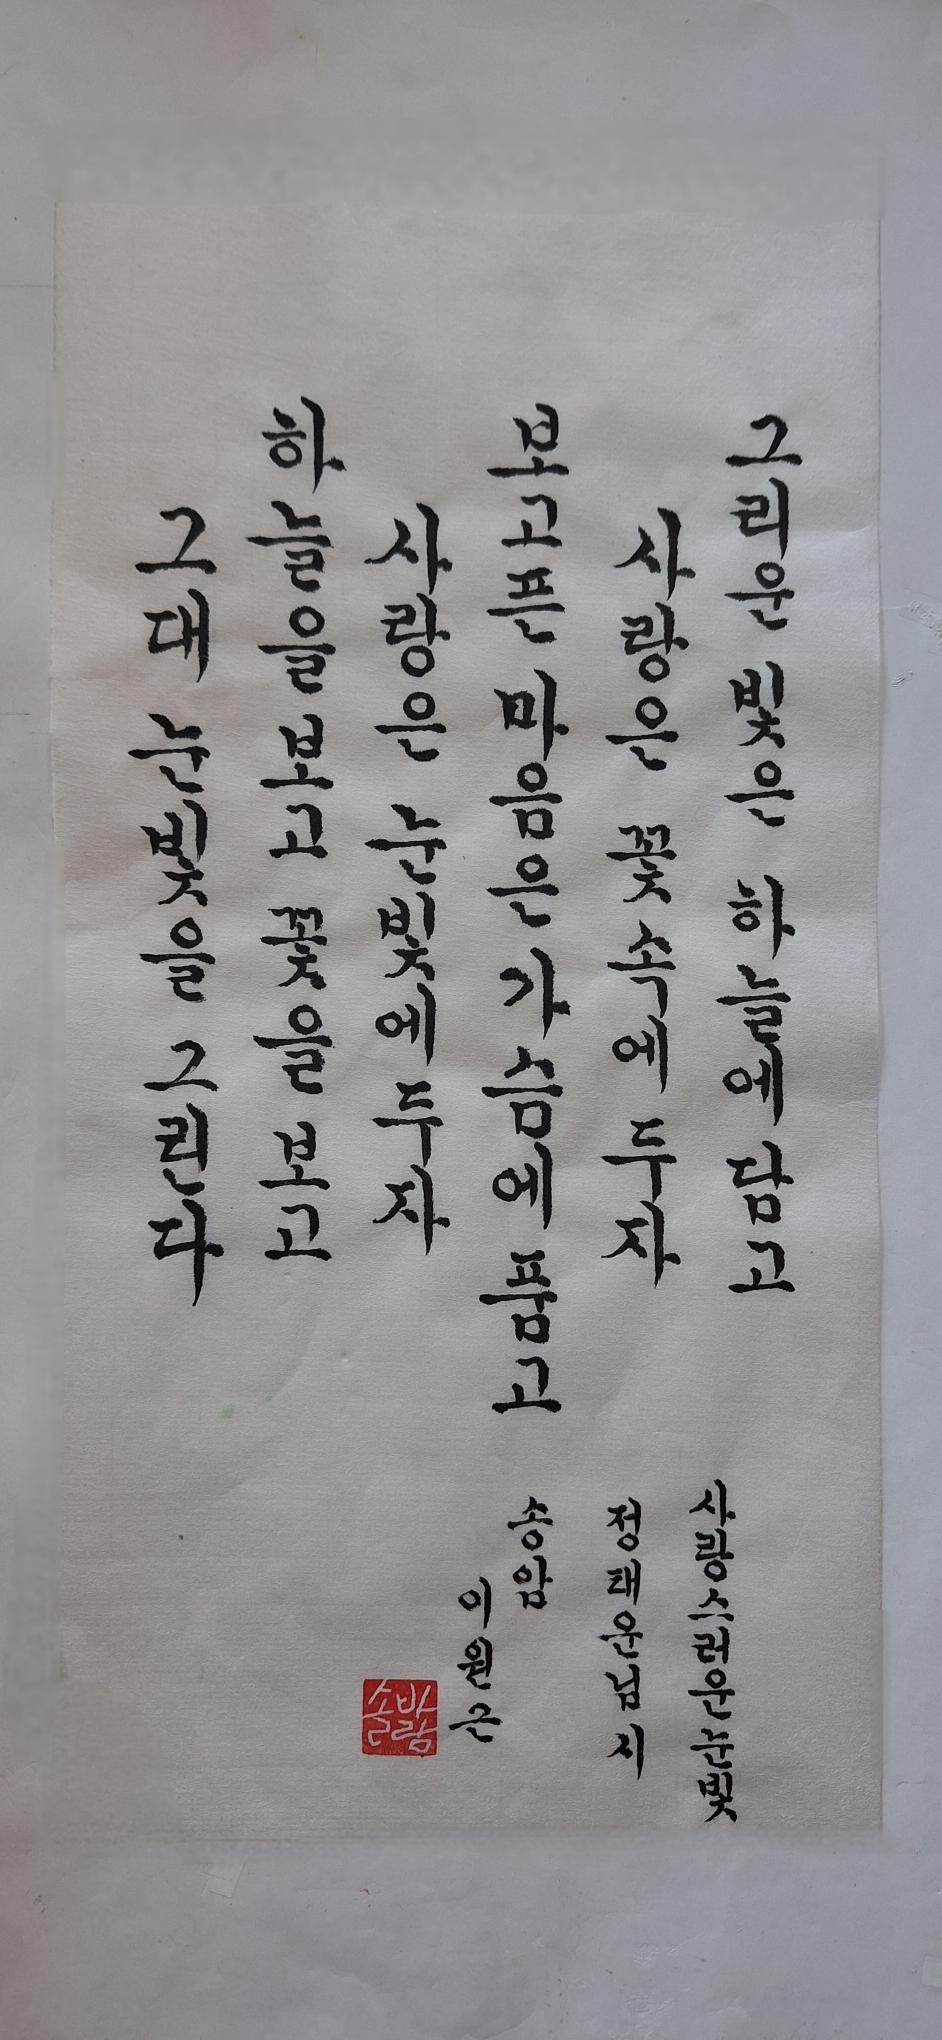 그리운 빛은 하늘에 담고
사랑은 꽃 속에 두자
보고픈 마음은 가슴에 품고
사랑은 눈빛에 두자
하늘을 보고 꽃을 보고
그대 눈빛을 그린다
사랑스러운 눈빛
정태운님 시
송암
이원근
솔바람